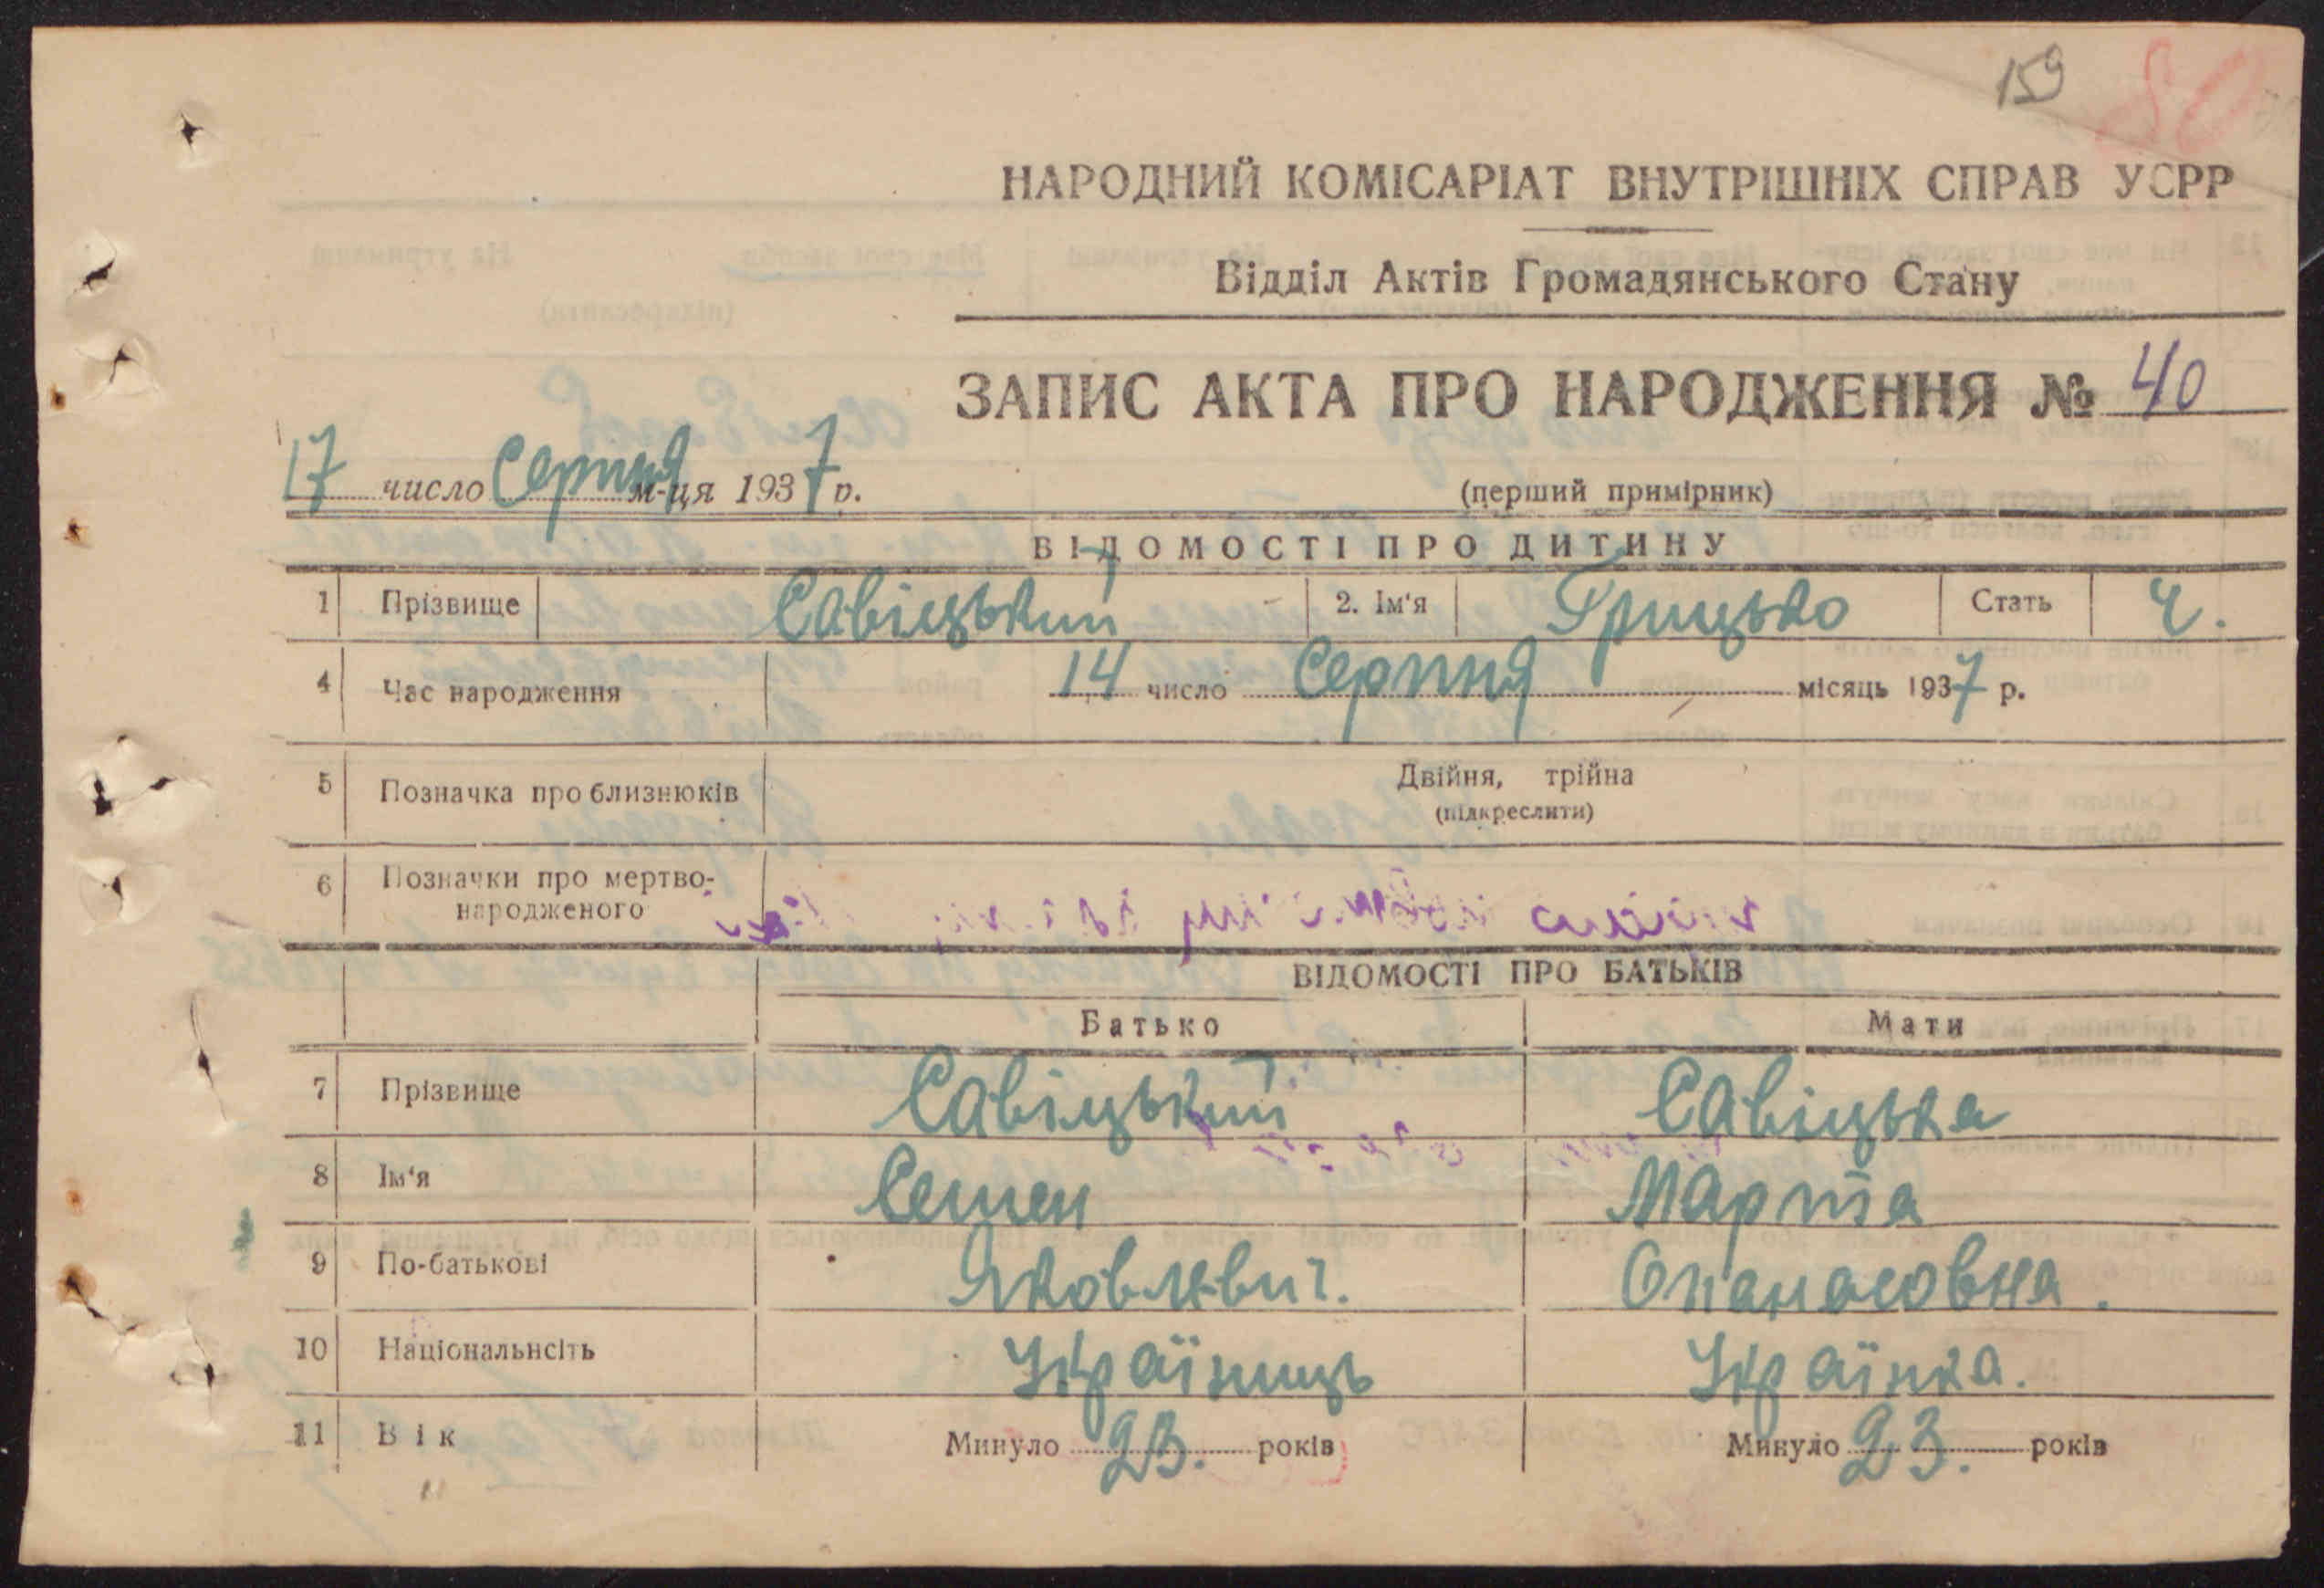 159 80
НАРОДНИЙ КОМІСАРІАТ ВНУТРІШНІХ СПРАВ УСРР
Відділ Актів Громадянського Стану
ЗАПИС АКТА ПРО НАРОДЖЕННЯ № 40
17 число Серпня м-ця 1937 р. (перший примірник)
ВІДОМОСТІ ПРО ДИТИНУ
1 Прізвище Савіцький 2. Ім'я Грицько Стать Ч.
4 Час народження 14 число Серпня місяць 1937 р.
5 Позначка про близнюків Двійня, трійна
(підкреслити)
6 Позначки про мертво-
народженого
ВІДОМОСТІ ПРО БАТЬКІВ
Батько Мати
7 Прізвище Савіцький Савіцька
8 Ім'я Семен Марта
9 По-батькові Яковлевич. Опанасовна.
10 Національнсіть Українець Українка.
11 Вік Минуло 23. років Минуло 23. років